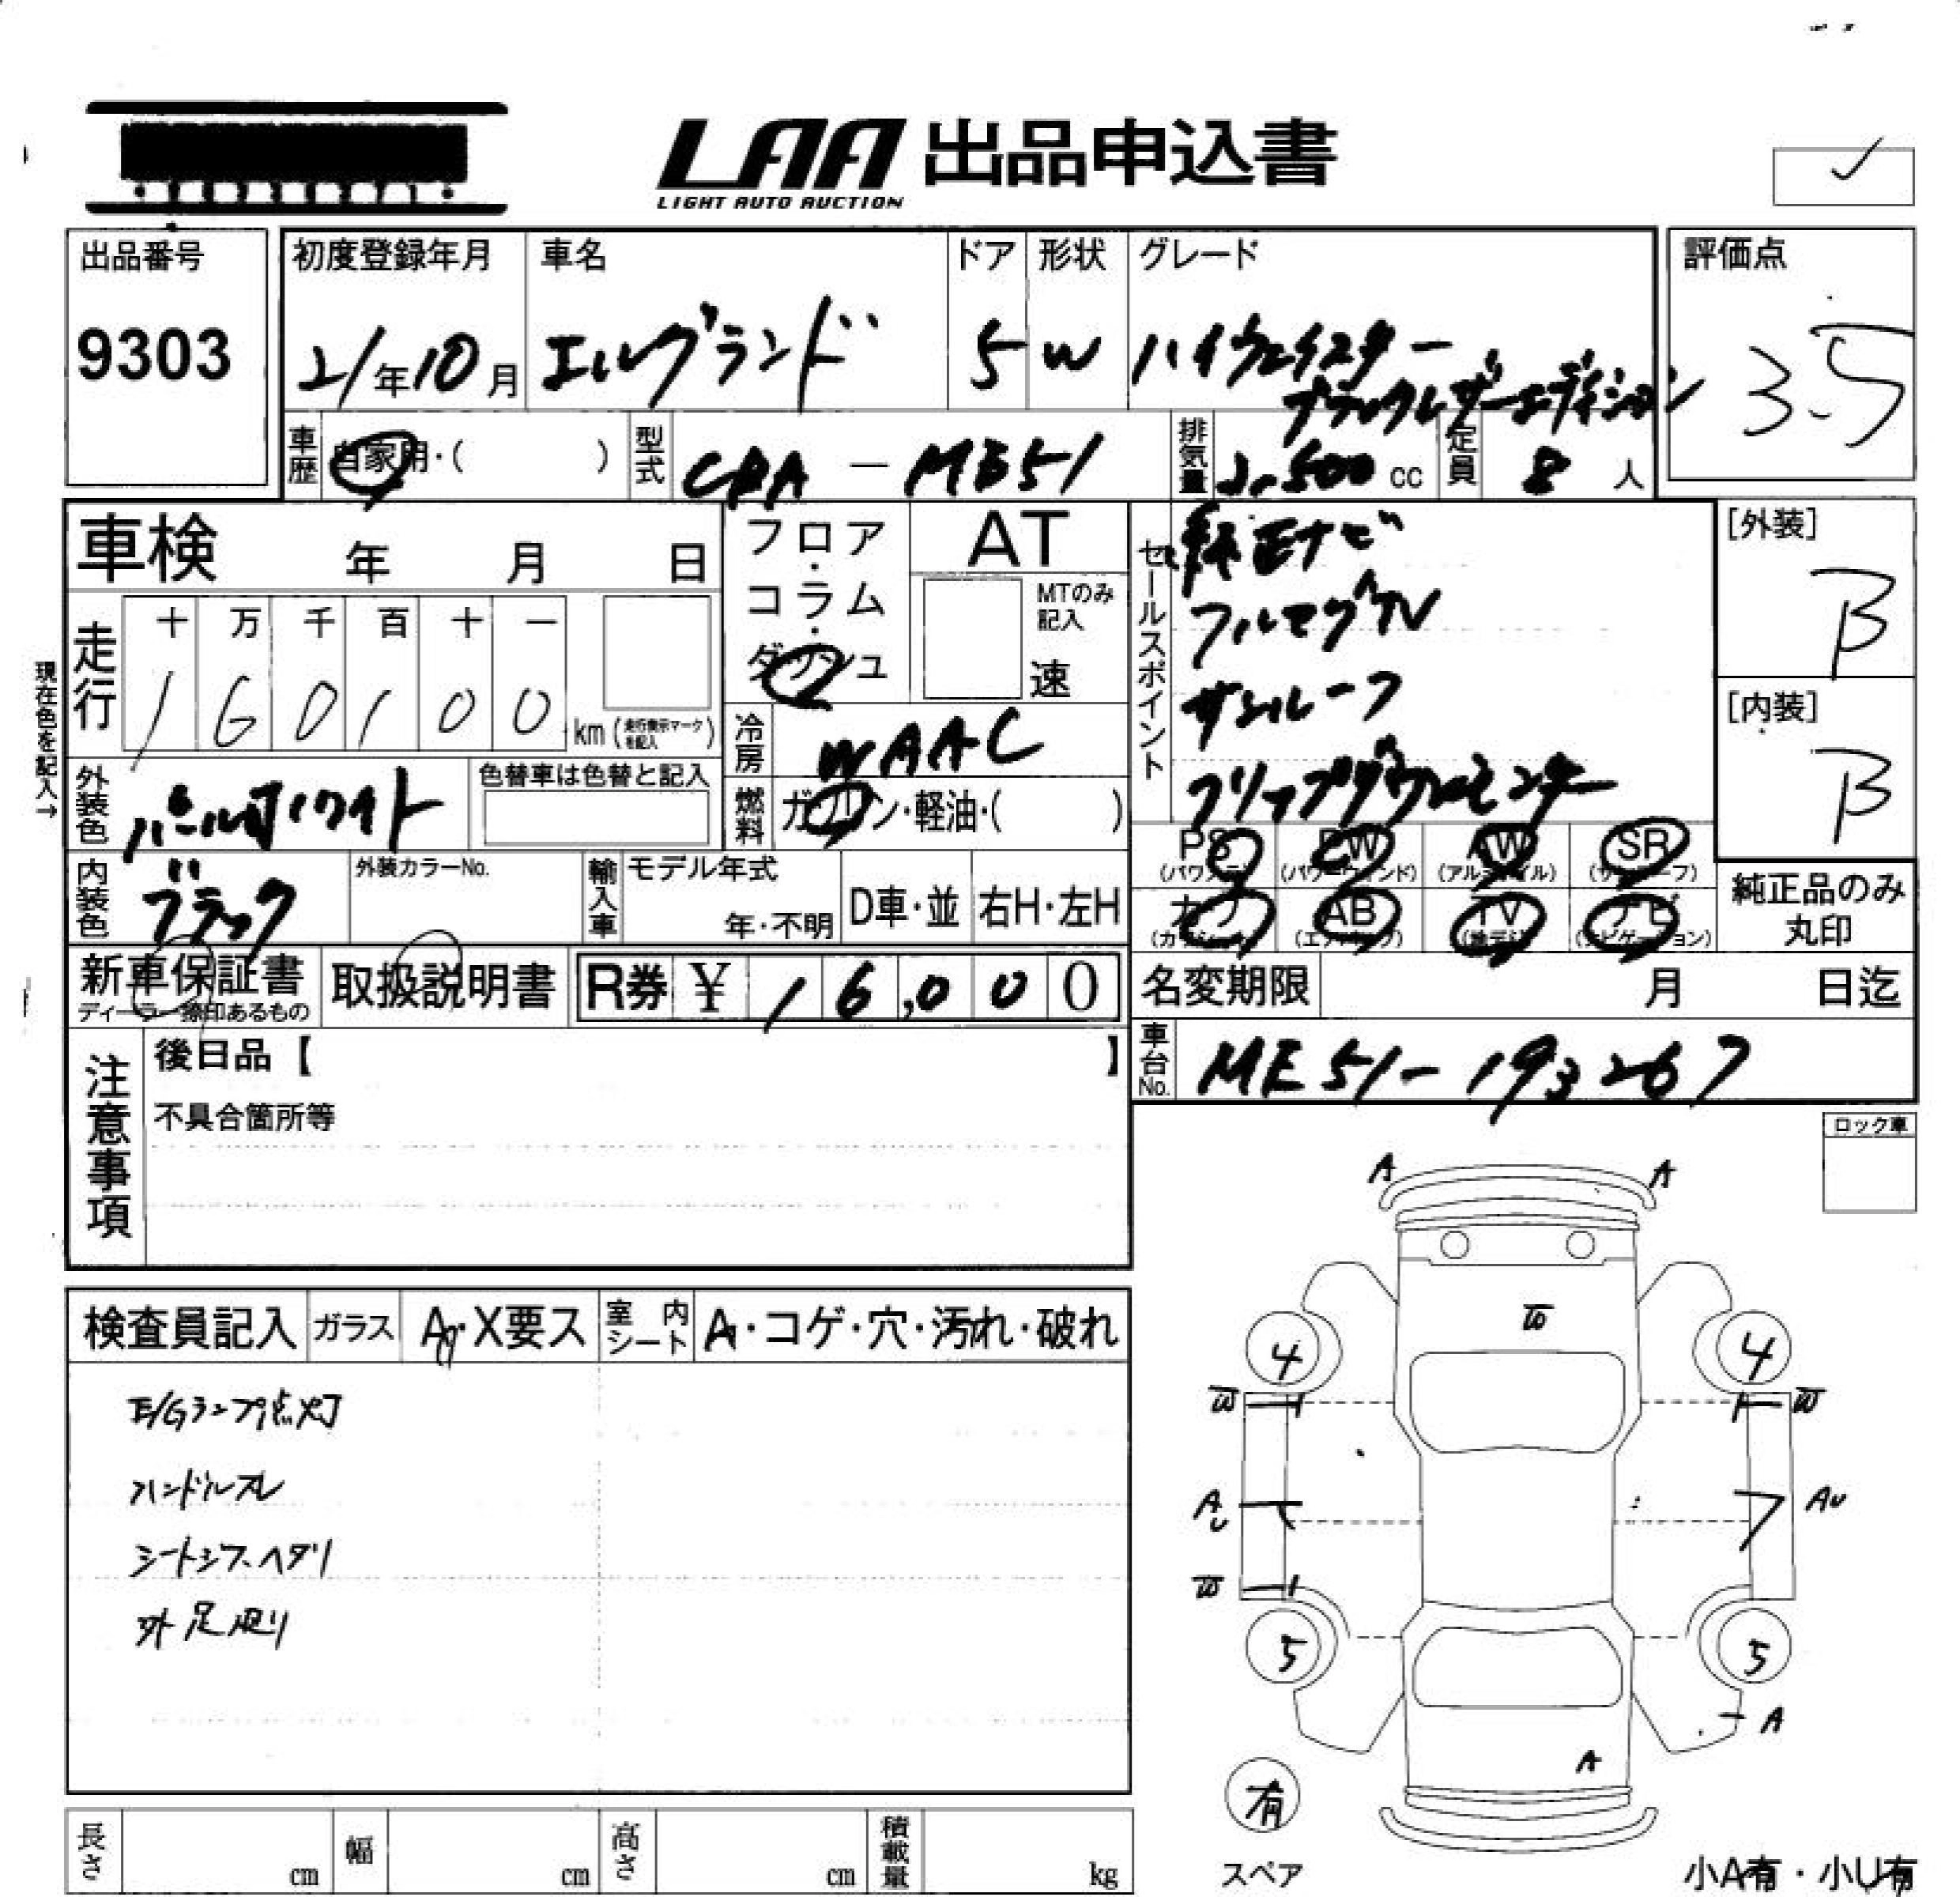 LAA 出品申込書
LIGHT AUTO AUCTION
出品番号
9303
初度登録年月
21年10月
車名
エルグランド
ドア
5
形状
W
グレード
ハイウェイスター
ブラックレザーエディション
評価点
3.5
車歴
自家用・( )
型式
CBA - ME51
排気量
2,500 cc
定員
8 人
車検 年 月 日
フロア・コラム・ダッシュ
AT
MTのみ記入
速
セールスポイント
純正ナビ
フルセグTV
サンルーフ
フリップダウンモニター
[外装]
B
[内装]
B
現在色を記入→
走行
十 万 千 百 十 一
1 6 0 1 0 0 km (走行表示マークを記入)
冷房
WAAC
燃料
ガソリン・軽油・( )
外装色
パールホワイト
色替車は色替と記入
内装色
ブラック
外装カラーNo.
輸入車
モデル年式
年・不明
D車・並
右H・左H
PS (パワステ)
PW (パワーウィンド)
AW (アルミホイル)
SR (サンルーフ)
カワ (カワシート)
AB (エアバッグ)
TV (地デジ)
ナビ (ナビゲーション)
純正品のみ丸印
新車保証書
ディーラー捺印あるもの
取扱説明書
R券 ¥ 16,000
名変期限 月 日迄
車台No.
ME51-193267
注意事項
後日品【 】
不具合箇所等
ロック車
検査員記入
ガラス
A・X要ス
室内シート
A・コゲ・穴・汚れ・破れ
E/Gランプ点灯
ハンドルスレ
シートシワ、ヘタリ
外足廻り
A A
W
4 4
W W
A U AU
W
5 5
A
A
有
スペア
小A有・小U有
長さ cm
幅 cm
高さ cm
積載量 kg